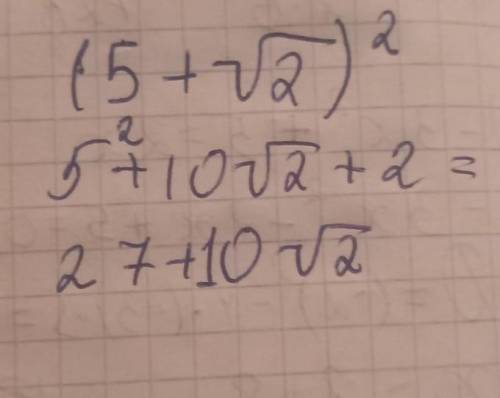 (5 + √2)²
5² + 10√2 + 2 =
27 + 10√2